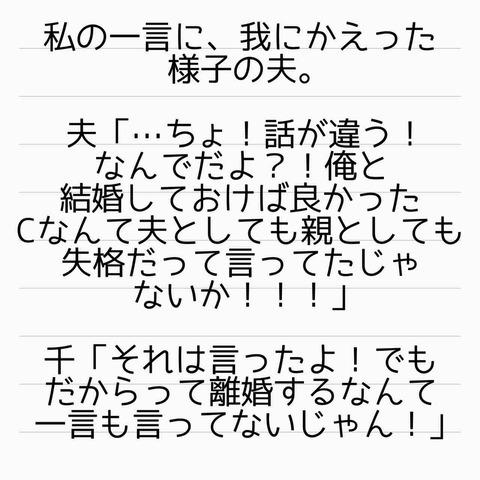 私の一言に、我にかえった
様子の夫。
夫「…ちょ！話が違う！
なんでだよ？！俺と
結婚しておけば良かった
Cなんて夫としても親としても
失格だって言ってたじゃ
ないか！！！」
千「それは言ったよ！でも
だからって離婚するなんて
一言も言ってないじゃん！」